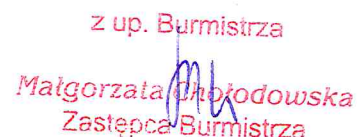 z up. Burmistrza
Małgorzata Chołodowska
Zastępca Burmistrza